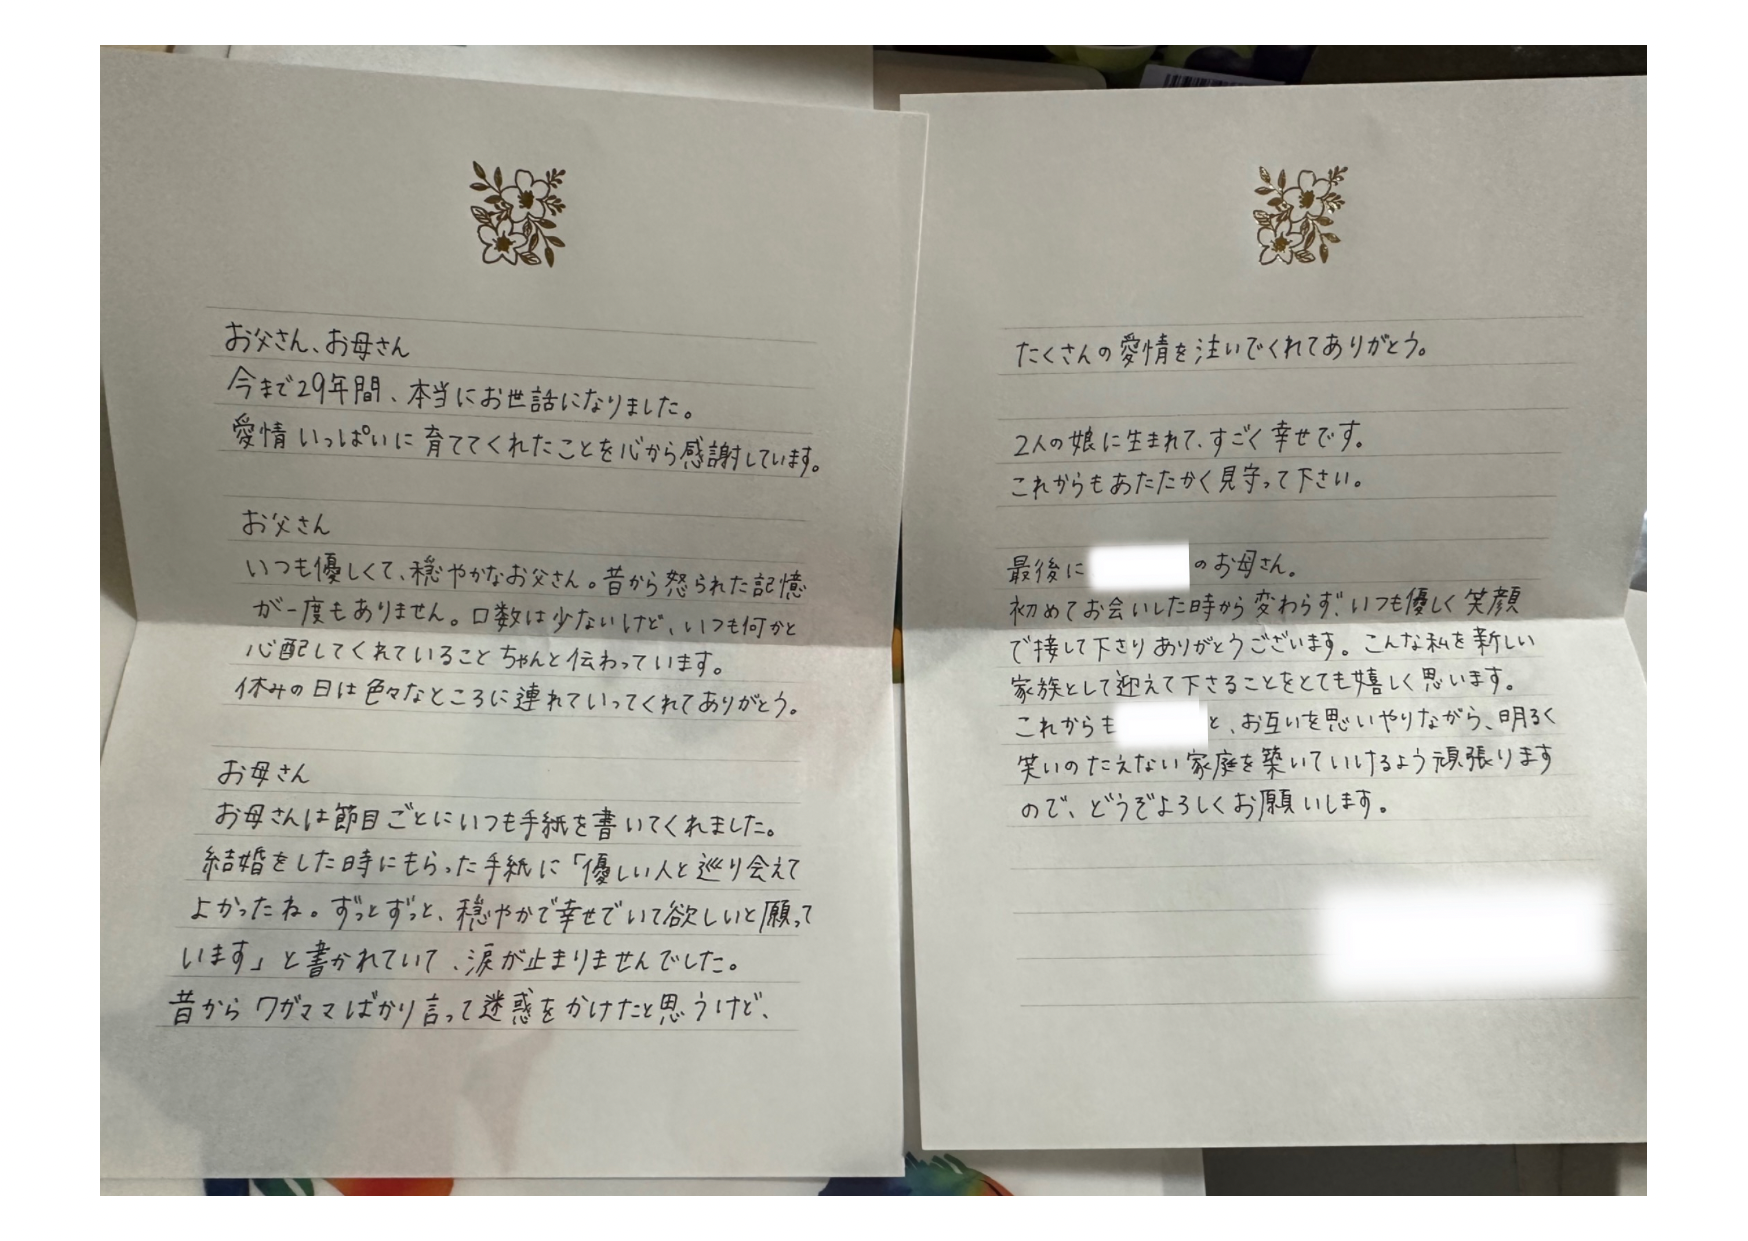 お父さん、お母さん
今まで29年間、本当にお世話になりました。
愛情いっぱいに育ててくれたことを心から感謝しています。
お父さん
いつも優しくて、穏やかなお父さん。昔から怒られた記憶
が一度もありません。口数は少ないけど、いつも何かと
心配してくれていることちゃんと伝わっています。
休みの日は色々なところに連れていってくれてありがとう。
お母さん
お母さんは節目ごとにいつも手紙を書いてくれました。
結婚をした時にもらった手紙に「優しい人と巡り会えて
よかったね。ずっとずっと、穏やかで幸せでいて欲しいと願って
います」と書かれていて、涙が止まりませんでした。
昔からワガママばかり言って迷惑をかけたと思うけど、
たくさんの愛情を注いでくれてありがとう。
2人の娘に生まれて、すごく幸せです。
これからもあたたかく見守って下さい。
最後に のお母さん。
初めてお会いした時から変わらず、いつも優しく笑顔
で接して下さりありがとうございます。こんな私を新しい
家族として迎えて下さることをとても嬉しく思います。
これからも と、お互いを思いやりながら、明るく
笑いのたえない家庭を築いていけるよう頑張ります
ので、どうぞよろしくお願いします。